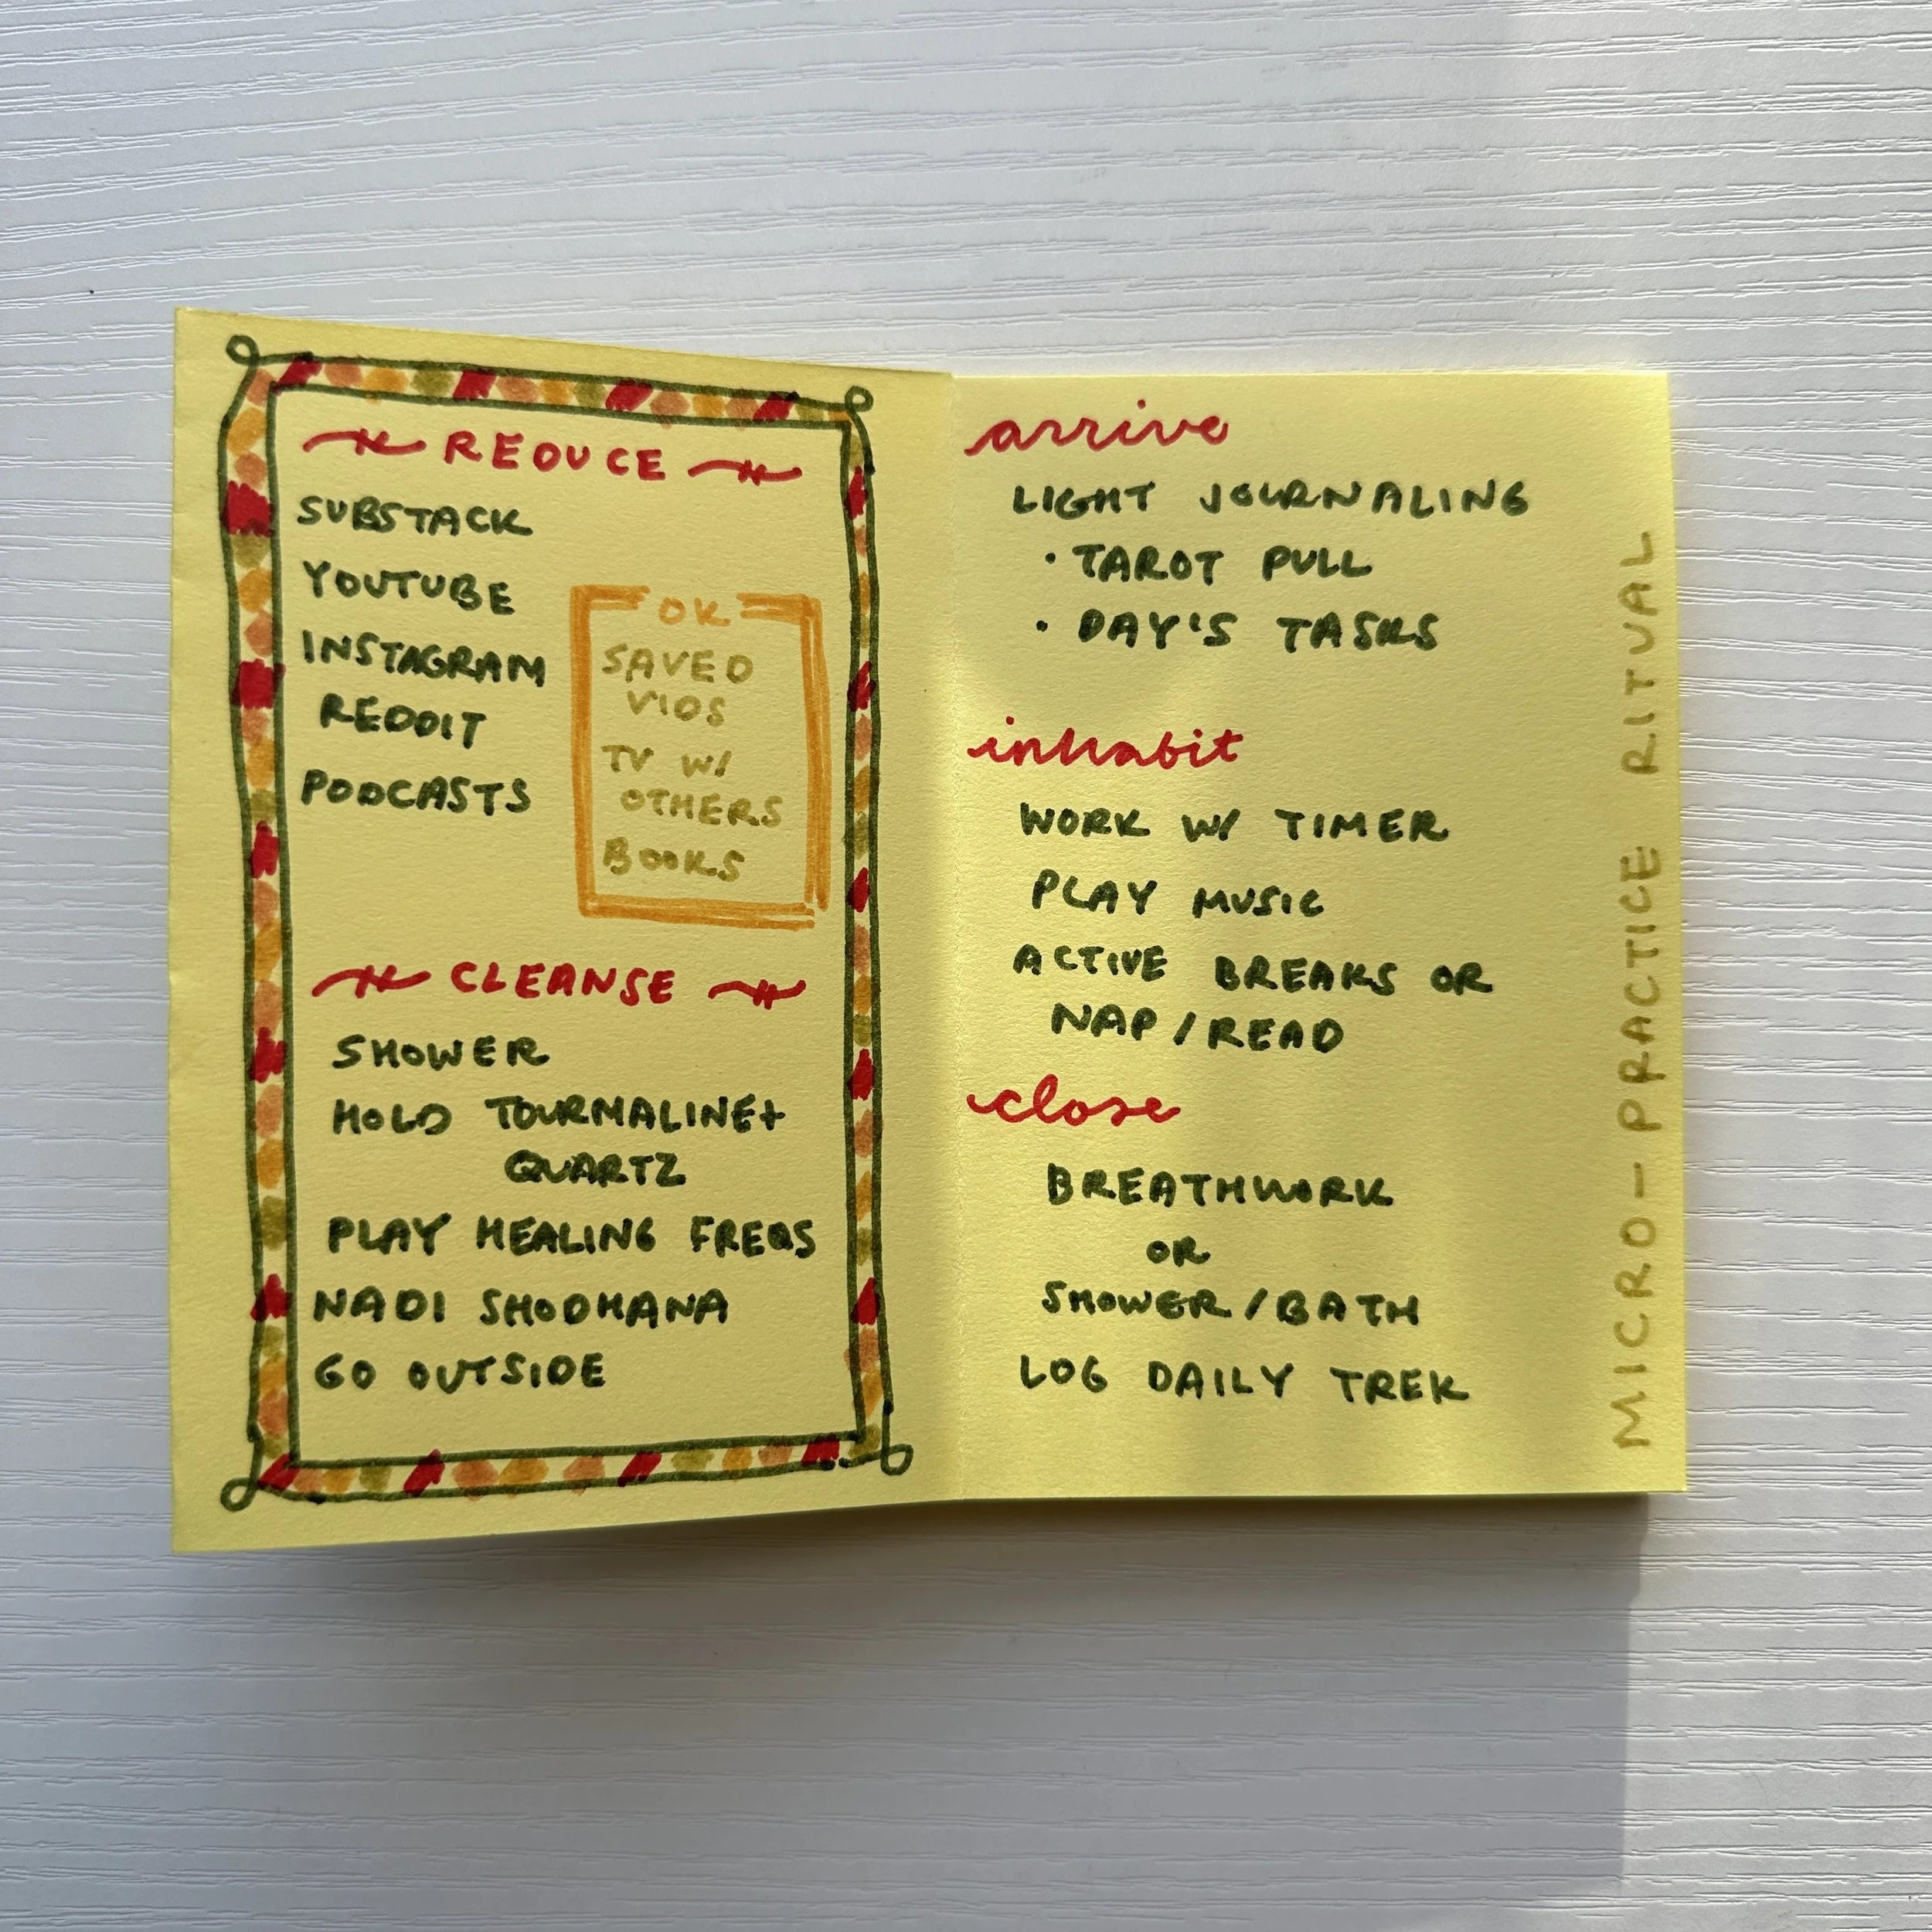 REDUCE
SUBSTACK
YOUTUBE
INSTAGRAM
REDDIT
PODCASTS
OK
SAVED
VIDS
TV W/
OTHERS
BOOKS
CLEANSE
SHOWER
HOLD TOURMALINE+
QUARTZ
PLAY HEALING FREQS
NADI SHODHANA
GO OUTSIDE
arrive
LIGHT JOURNALING
• TAROT PULL
• DAY'S TASKS
inhabit
WORK W/ TIMER
PLAY MUSIC
ACTIVE BREAKS OR
NAP/READ
close
BREATHWORK
OR
SHOWER/BATH
LOG DAILY TREK
MICRO-PRACTICE RITUAL